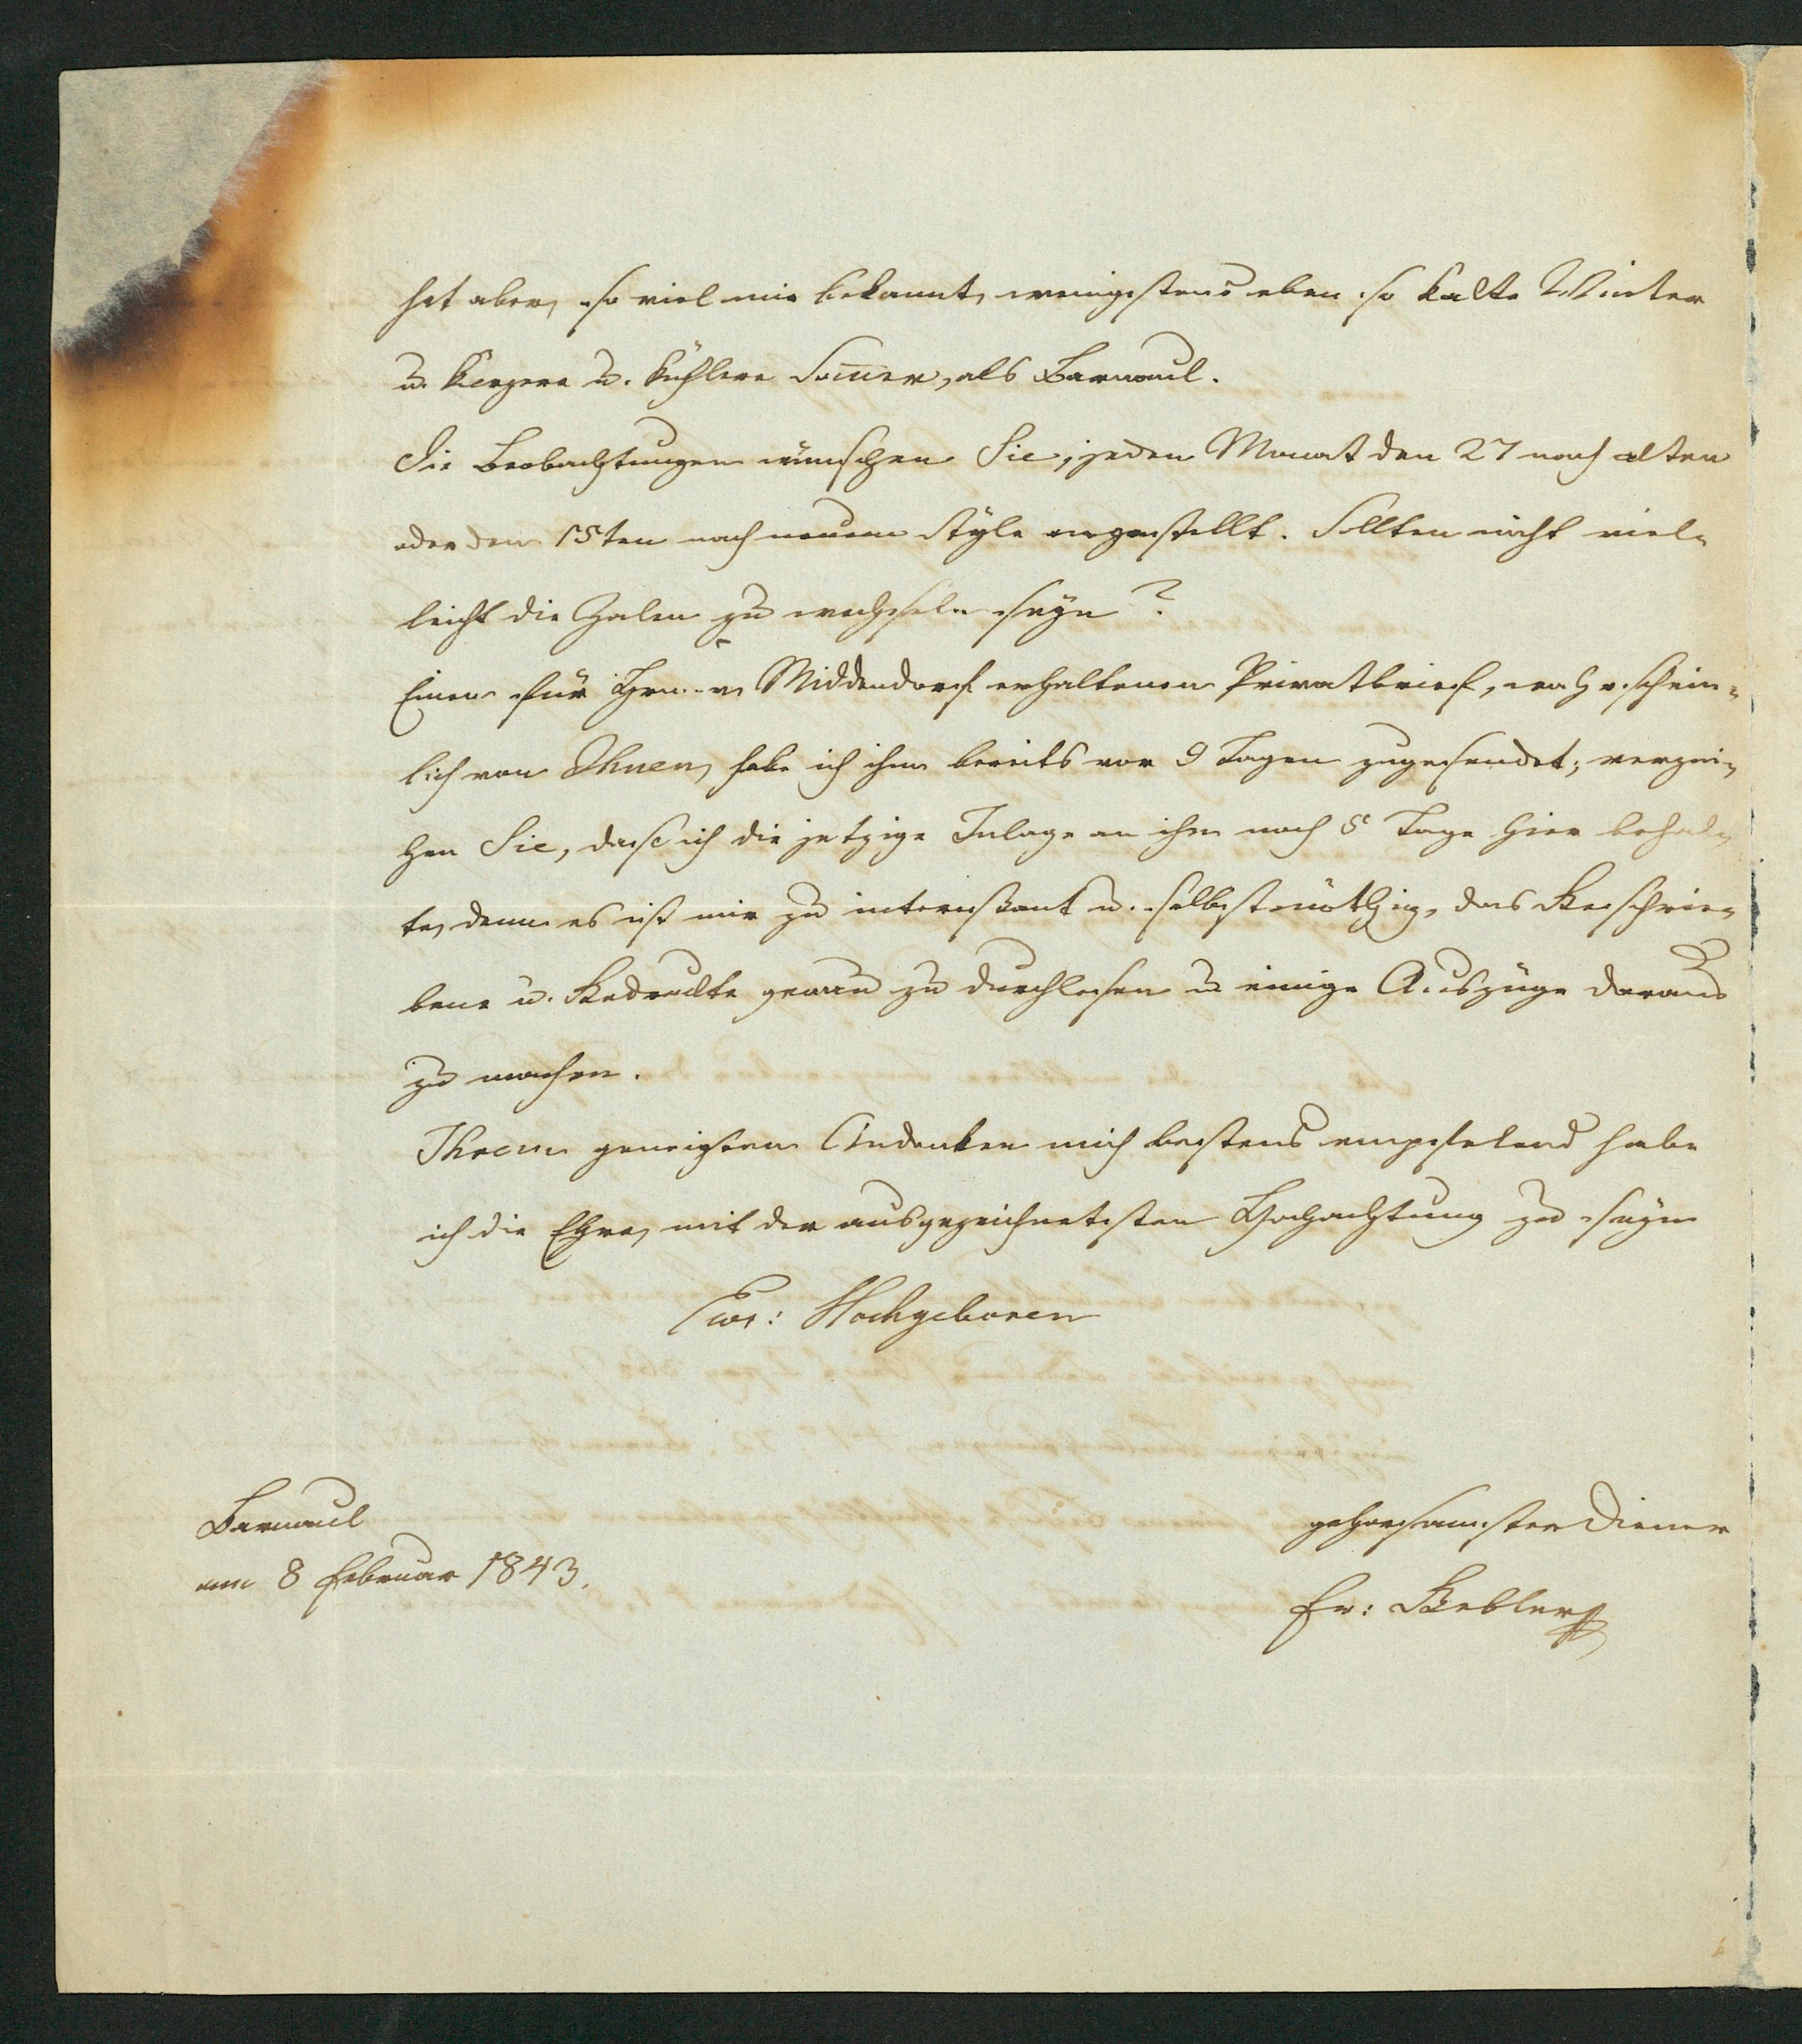 hat aber, so viel mir bekannt, wenigstens eben so kalte Winter
u. kürzere u. kühlere Som̅er, als Barnaul.
Die Beobachtungen wünschen Sie, jeden Monat den 27 nach alten
oder den 15ten nach neuem Style angestellt. Sollten nicht viel-
leicht die Zalen zu wechseln seyn?
Einen für Hrn. v. Middendorf erhaltenen Privatbrief, wahrschein-
lich von Ihnen, habe ich ihm bereits vor 9 Tagen zugesendet; verzei-
hen Sie, dass ich die jetzige Inlage an ihn noch 5 Tage hier behal-
te, denn es ist mir zu interessant u. selbst nöthig, das Geschrie-
bene u. Gedruckte genau zu durchlesen u. einige Auszüge daraus
zu machen.
Ihrem geneigten Andenken mich bestens empfelend habe
ich die Ehre, mit der ausgezeichnetsten Hochachtung zu seyn
Ewr: Hochgeboren
Barnaul
am 8 Februar 1843.
gehorsamster Diener
Fr: Gebler